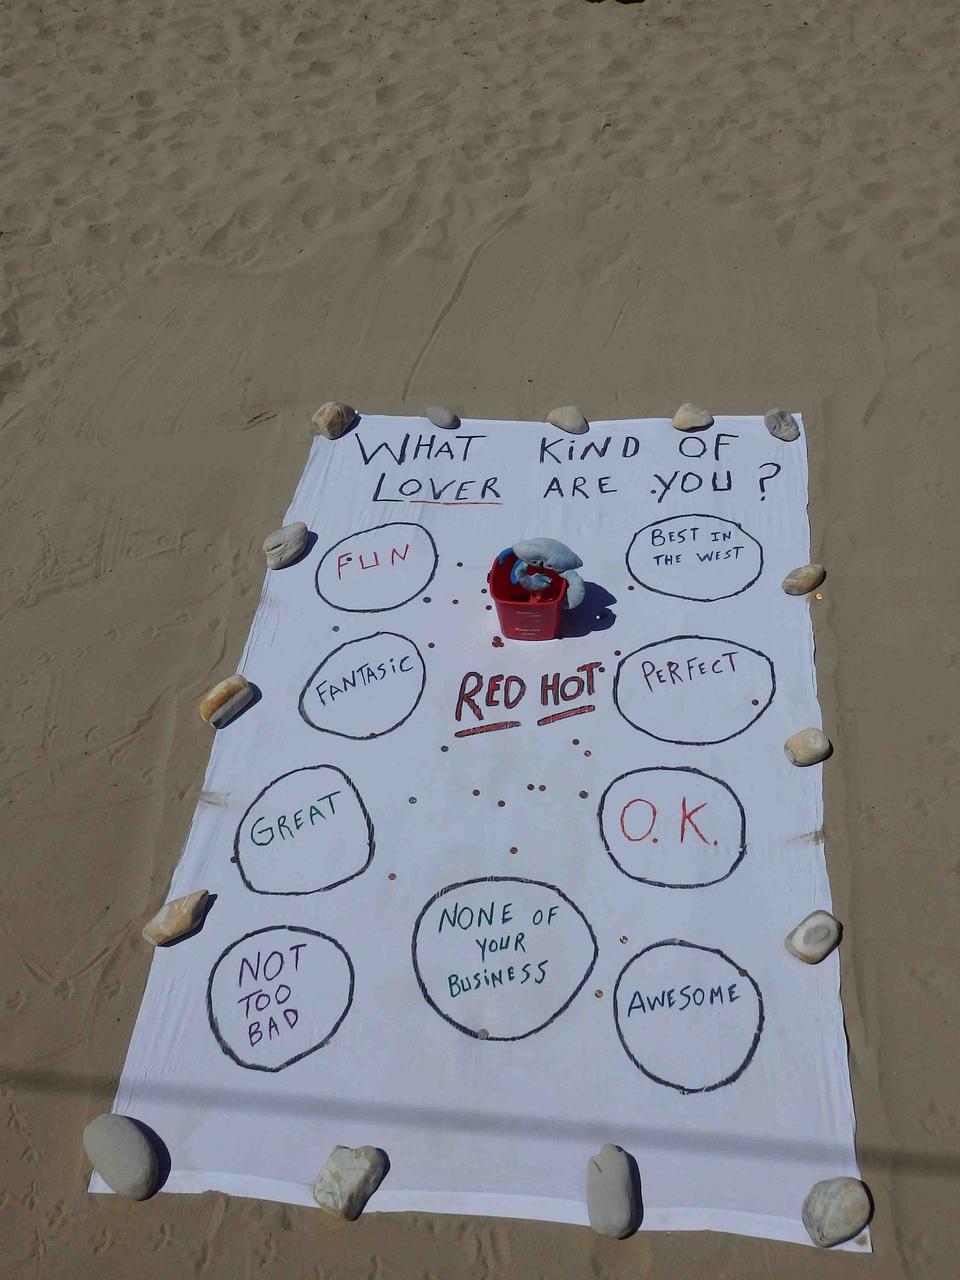 WHAT KIND OF
LOVER ARE YOU?
FUN
BEST IN
THE WEST
FANTASIC
RED HOT
PERFECT
GREAT
O.K.
NOT
TOO
BAD
NONE OF
YOUR
BUSINESS
AWESOME